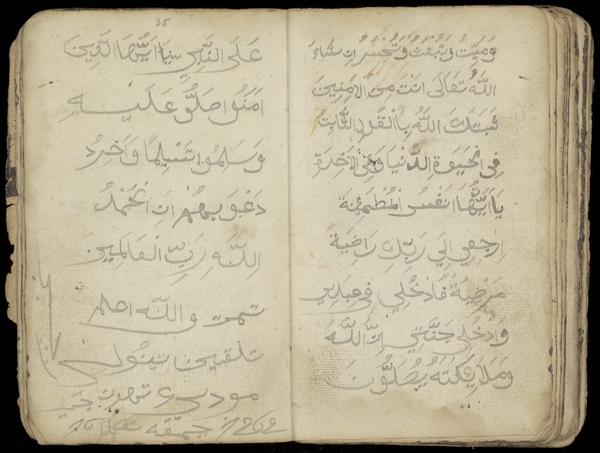 وميت وتبعث وتحشر ان شاء
الله تعالى انت من الامنين
ثبتك الله بالقول الثابت
في الحيوة الدنيا وفي الاخرة
يا ايتها نفس المطمئنة
ارجعي الي ربك راضية
مرضية فادخلي في عبدي
وادخلي جنتي ان الله
وملائكته يصلون
35
على النبي يا ايها الذين
امنوا صلو عليه
وسلموا تسليما واخر
دعويهم ان الحمد
لله رب العالمين
تمت والله اعلم
تلقين
1262